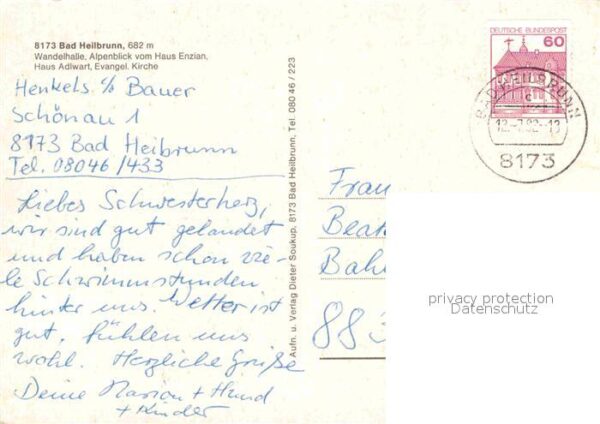 8173 Bad Heilbrunn, 682 m
Wandelhalle, Alpenblick vom Haus Enzian,
Haus Adlwart, Evangel. Kirche
Henkels c/o Bauer
Schönau 1
8173 Bad Heibrunn
Tel. 08046/433
Liebes Schwesterherz,
wir sind gut gelandet
und haben schon vie-
le Schwimmstunden
hinter uns. Wetter ist
gut, fühlen uns
wohl. Herzliche Grüße
Deine Marion + Hund
+ Kinder
Aufn. u. Verlag Dieter Soukup, 8173 Bad Heilbrunn, Tel. 080 46 / 223
DEUTSCHE BUNDESPOST
60
BAD HEILBRUNN
c
12.-7.82-13
8173
Frau
Beat
Bah
883
privacy protection
Datenschutz